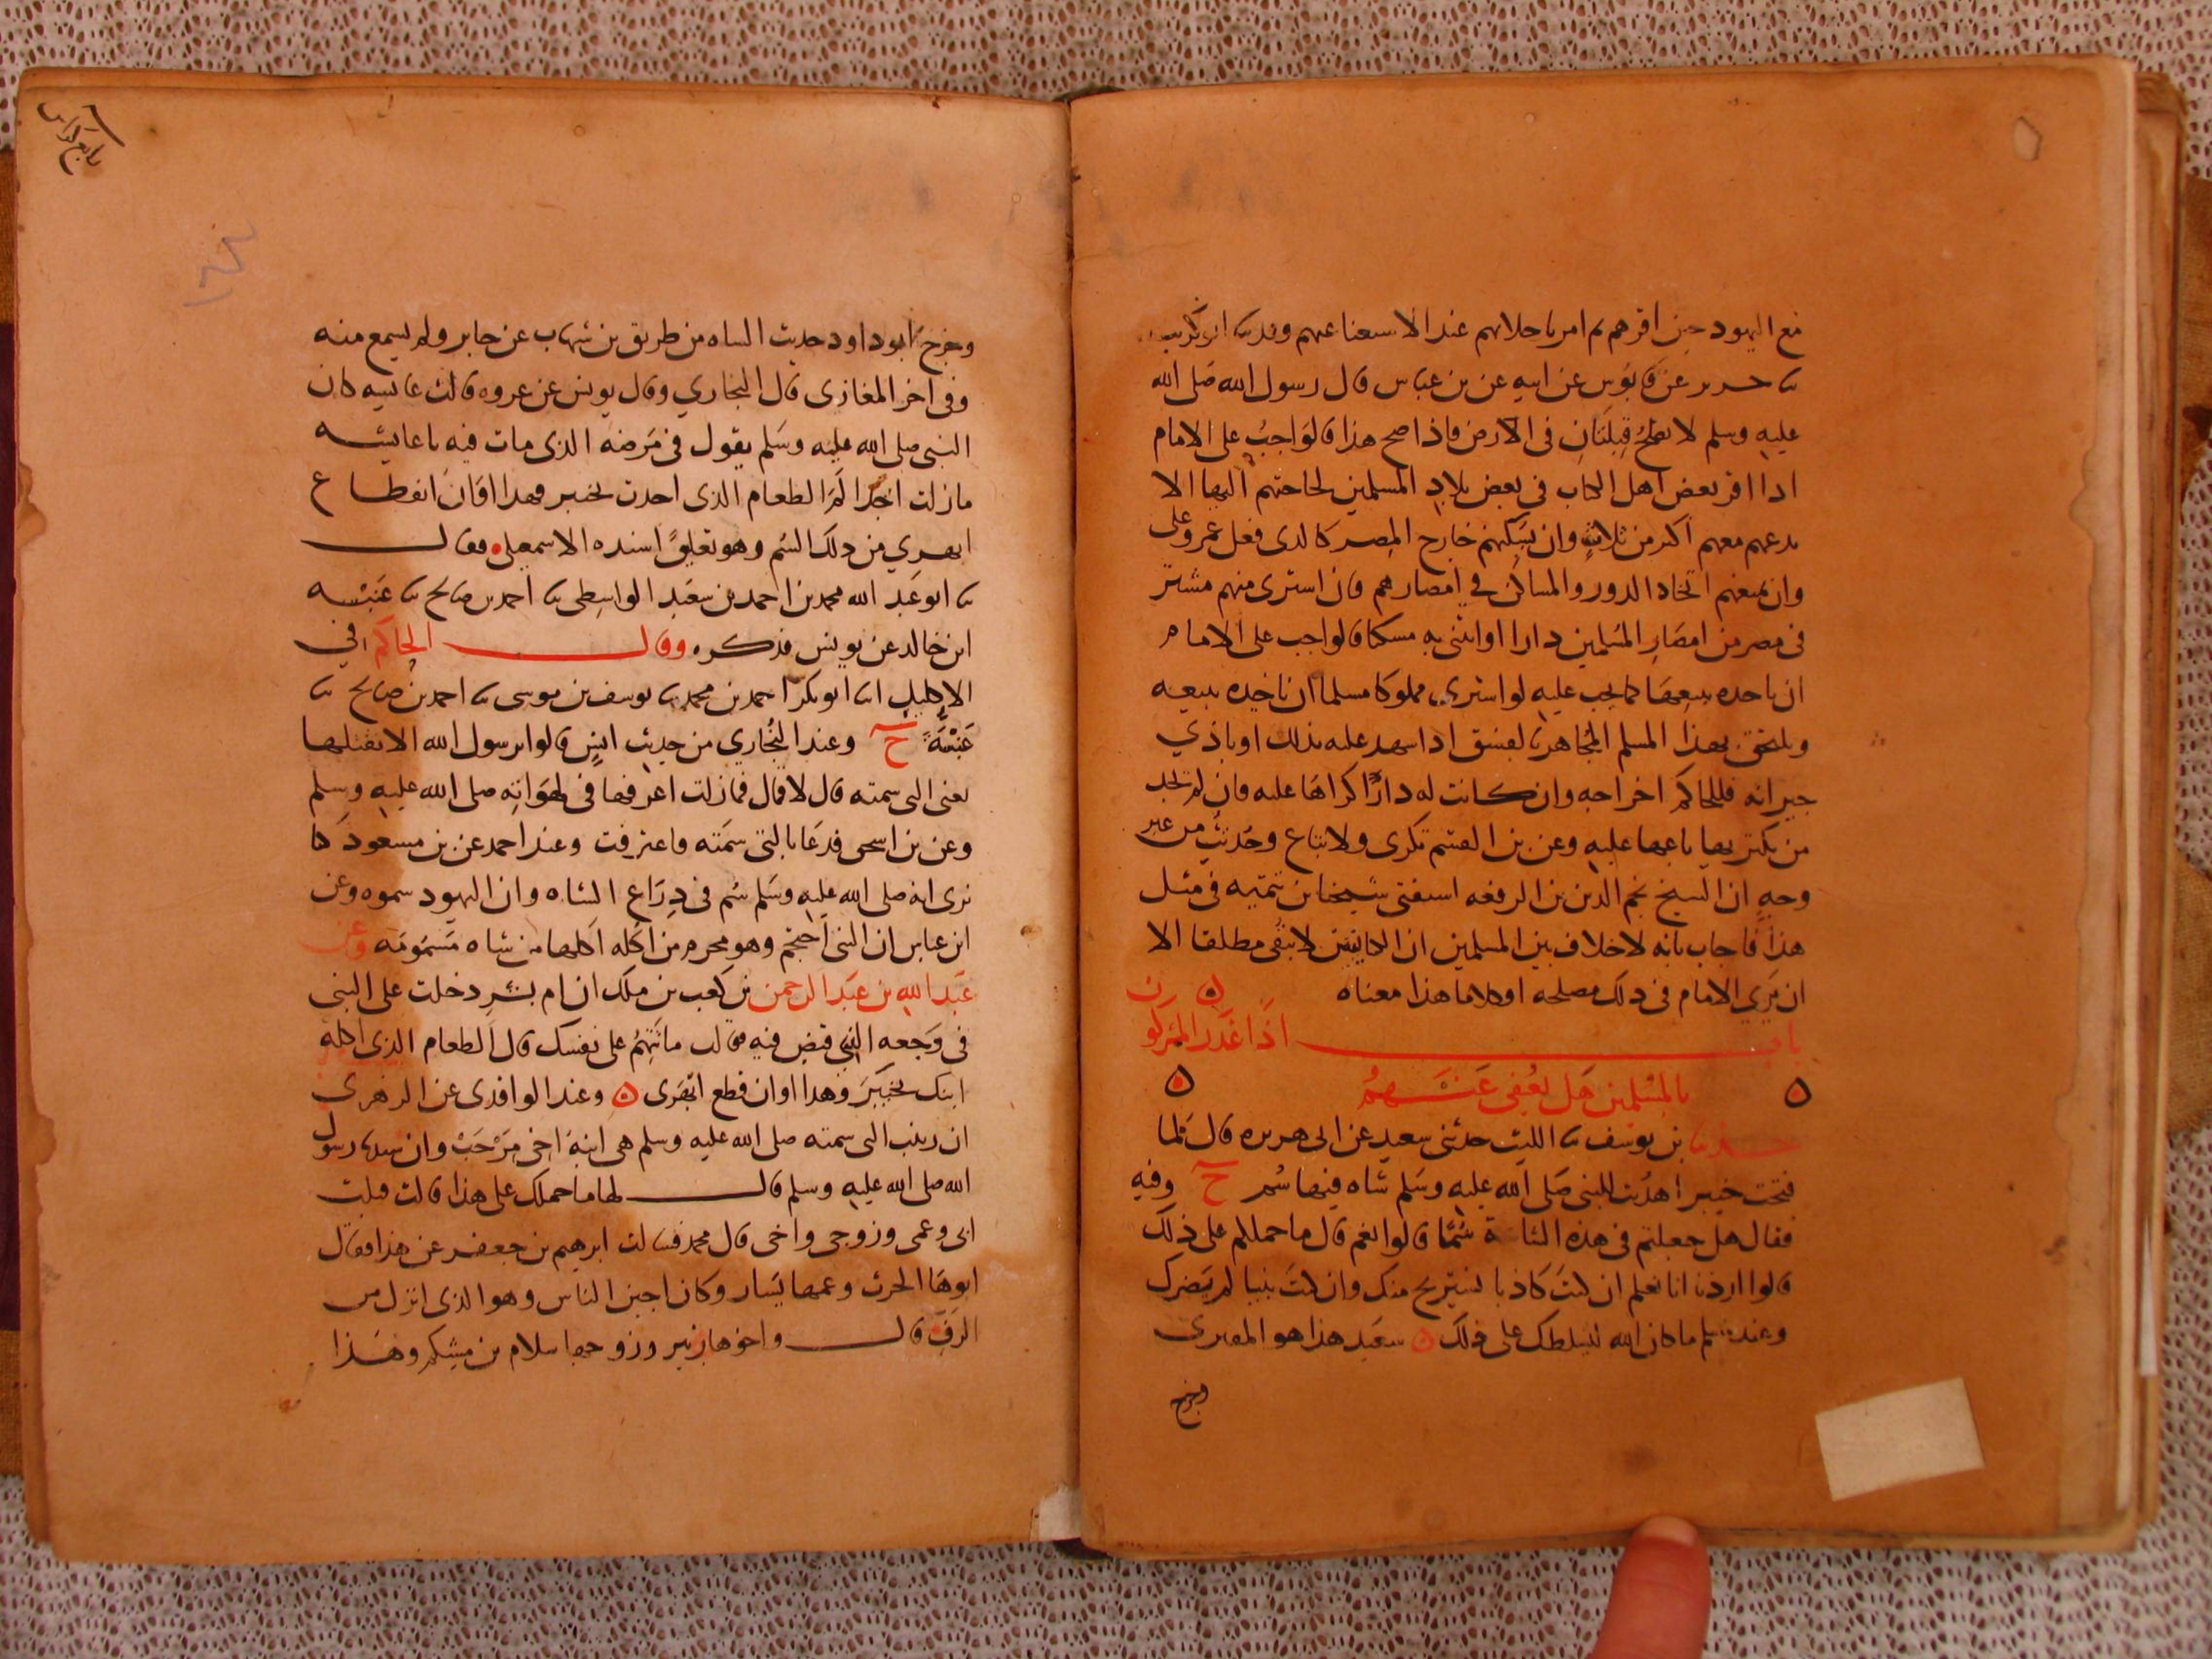 مع اليهود حين اقرهم ثم امر باجلائهم عند الاسعنا عنهم وقد ثنا ابو كريب
ثنا جرير عن قابوس عن ابيه عن بن عباس قال رسول الله صلى الله
عليه وسلم لا تصلح قبلتان في الارض فاذا صح هذا فالواجب على الامام
اذا اقر بعض اهل الكتاب في بعض بلاد المسلمين لحاجتهم اليها الا
يدعهم معهم اكثر من ثلاث وان يسكنهم خارج المصر كالذي فعل عمر وعلى
وان يمنعهم اتخاذ الدور والمساكن في امصارهم فان اشترى منهم مشتر
في مصر من امصار المسلمين دارا او ابتنى به مسكنا فالواجب على الامام
ان ياخذه ببيعها كما يجب عليه لو اشترى مملوكا مسلما ان ياخذه ببيعه
ويلتحق بهذا المسلم المجاهر بالفسق اذا شهد عليه بذلك او باذي
جيرانه فللحاكم اخراجه وان كانت له دارًا اكراها عليه فان لم تجد
من يكتريها باعها عليه وعن بن القسم تكرى ولا تباع وحُدثتُ من غير
وجهٍ ان الشيخ نجم الدين بن الرفعه استفتى شيخنا بن تيميه في مثل
هذا فاجاب بانه لا خلاف بين المسلمين ان الكنايس لا تبقى مطلقا الا
ان يَرَي الامام في ذلك مصلحه او كلاما هذا معناه
باب اذا غدر المشركون
بالمسلمين هل يعفى عنهم
حدثنا بن يوسف ثنا الليث حدثني سعيد عن ابي هريره قال لما
فتحت خيبر اهديت للنبي صلى الله عليه وسلم شاه فيها سُم ح وفيه
فقال هل جعلتم في هذه الشاة سُمًّا قالوا نعم قال ما حملكم على ذلك
قالوا اردنا انا نعلم ان كنت كاذبا نستريح منك وان كنت نبيا لم يضرك
وعند مسلم ما كان الله ليسلطك على ذلك سعيد هذا هو المقبرى
وخرج
وخرج ابو داود حديث الشاه من طريق بن شهاب عن جابر ولم يسمع منه
وفي اخر المغازى قال البخاري وقال يونس عن عروه قالت عايشه كان
النبي صلى الله عليه وسلم يقول في مرضه الذي مات فيه يا عايشه
مازلت اجد الم الطعام الذي اكلت بخيبر فهذا اوان انقطاع
ابهري من ذلك السُم وهو تعليقٌ اسنده الاسمعيلي فقال
ثنا ابو عبد الله محمد بن احمد بن سعيد الواسطي ثنا احمد بن صالح ثنا عَنبَسه
ابن خالد عن يونس فذكره وقال الحاكم في
الاكليل انا ابو بكر احمد بن محمد ثنا يوسف بن موسى ثنا احمد بن صالح ثنا
عَنبسَة ح وعند البُخاري من حديث انسٍ قالوا يرسول الله الا نقتلها
يعني التي سمته قال لا قال فمازلت اعرفها في لهوَاتِه صلى الله عليه وسلم
وعن بن اسحق فدعَا بالتي سَمَته فاعترفت وعند احمد عن بن مسعود كنا
نرى انه صلى الله عليه وسلم سُم في ذِرَاع الشاه وان اليهود سموه وعن
ابن عباس ان النبي احتجم وهو محرم من اكله اكلها من شاه مَسمُومَه وعن
عَبد الله بن عبد الرحمن بن كعب بن ملك ان ام بشر دخلت على النبي
في وَجعه الذي قبض فيه فقالت ما تتهمُ على نفسك قال الطعام الذي اكله
ابنك بخَيبَرَ وهذا اوان قطع ابهَرى وعند الواقدى عن الزهرى
ان زينب التي سمته صلى الله عليه وسلم هي ابنة اخي مَرْحَبْ وان سيدنا رسول
الله صلى الله عليه وسلم قال لها ما حملك على هذا قالت قتلت
ابي وعمى وزوجي واخي قال محمد فسالت ابرهيم بن جعفر عن هذا فقال
ابوهَا الحرث وعمها يَسَار وكان اجبن الناس وهو الذي انزل من
الرَفّ قال واخوها زبير وزوجها سلام بن مِشكم وهَذا